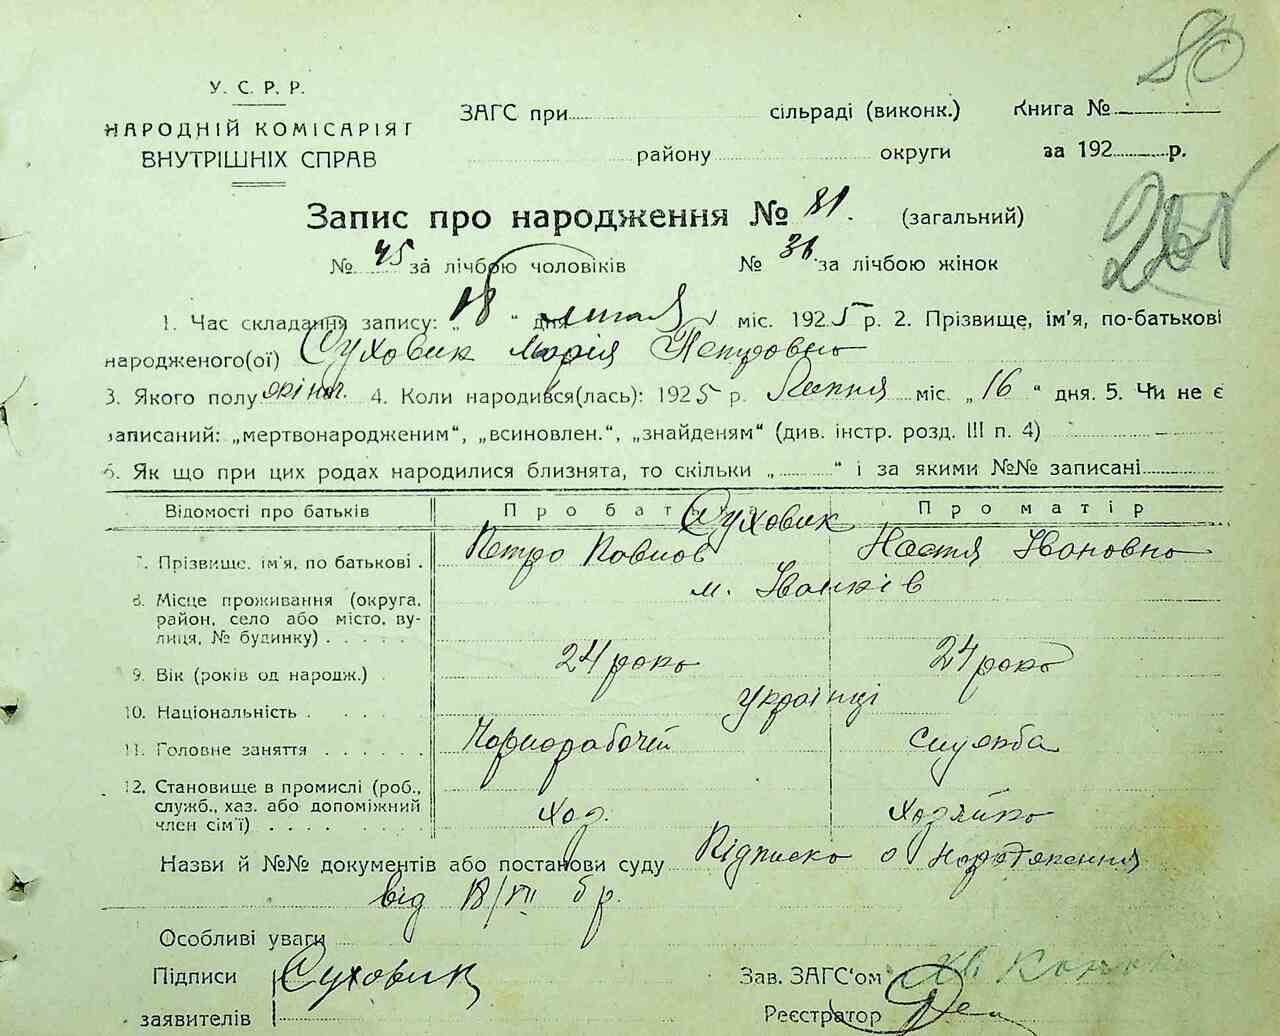 80
У. С. Р. Р.
НАРОДНІЙ КОМІСАРІЯТ
ВНУТРІШНІХ СПРАВ
ЗАГС при сільраді (виконк.) Книга №
району округи за 192 р.
Запис про народження № 81. (загальний)
№ 45 за лічбою чоловіків № 36 за лічбою жінок
1. Час складання запису: „18“ дня міс. 1925 р. 2. Прізвище, ім'я, по-батькові
народженого(ої) Суховик Марія Петровна
3. Якого полу жіноч. 4. Коли народився(лась): 1925 р. Липня міс. „16“ дня. 5. Чи не є
записаний: „мертвонародженим“, „всиновлен.“, „знайденям“ (див. інстр. розд. III п. 4)
6. Як що при цих родах народилися близнята, то скільки „ “ і за якими №№ записані
Відомості про батьків Про батька Про матір
Суховик
7. Прізвище, ім'я, по батькові. Петро Павлов Настя Івановна
8. Місце проживання (округа, м. Іванків
район, село або місто, ву-
лиця, № будинку)
9. Вік (років од народж.) 24 роки 24 роки
10. Національність Українці
11. Головне заняття Чорнорабочей Служба
12. Становище в промислі (роб.,
служб., хаз. або допоміжний Хаз. Хазяйка
член сім'ї)
Назви й №№ документів або постанови суду Підписка о народження
від 18/VII б р.
Особливі уваги
Підписи Суховик Зав. ЗАГС'ом
заявителів Реєстратор